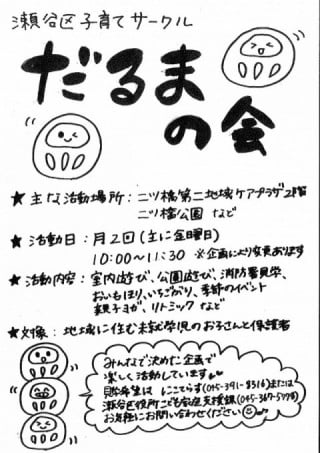 瀬谷区子育てサークル
だるま
の会
★ 主な活動場所：二ツ橋第二地域ケアプラザ2階
二ツ橋公園 など
★ 活動日：月2回（主に金曜日）
10:00～11:30 ※企画により変更あります
★ 活動内容：室内遊び、公園遊び、消防署見学、
おいもほり、いちごがり、季節のイベント
親子ヨガ、リトミック など
★ 対象：地域に住む未就学児のお子さんと保護者
みんなで決めた企画で
楽しく活動しています
見学希望は にこてらす(045-391-8316)または
瀬谷区役所こども家庭支援課(045-367-5778)
お気軽にお問い合わせください